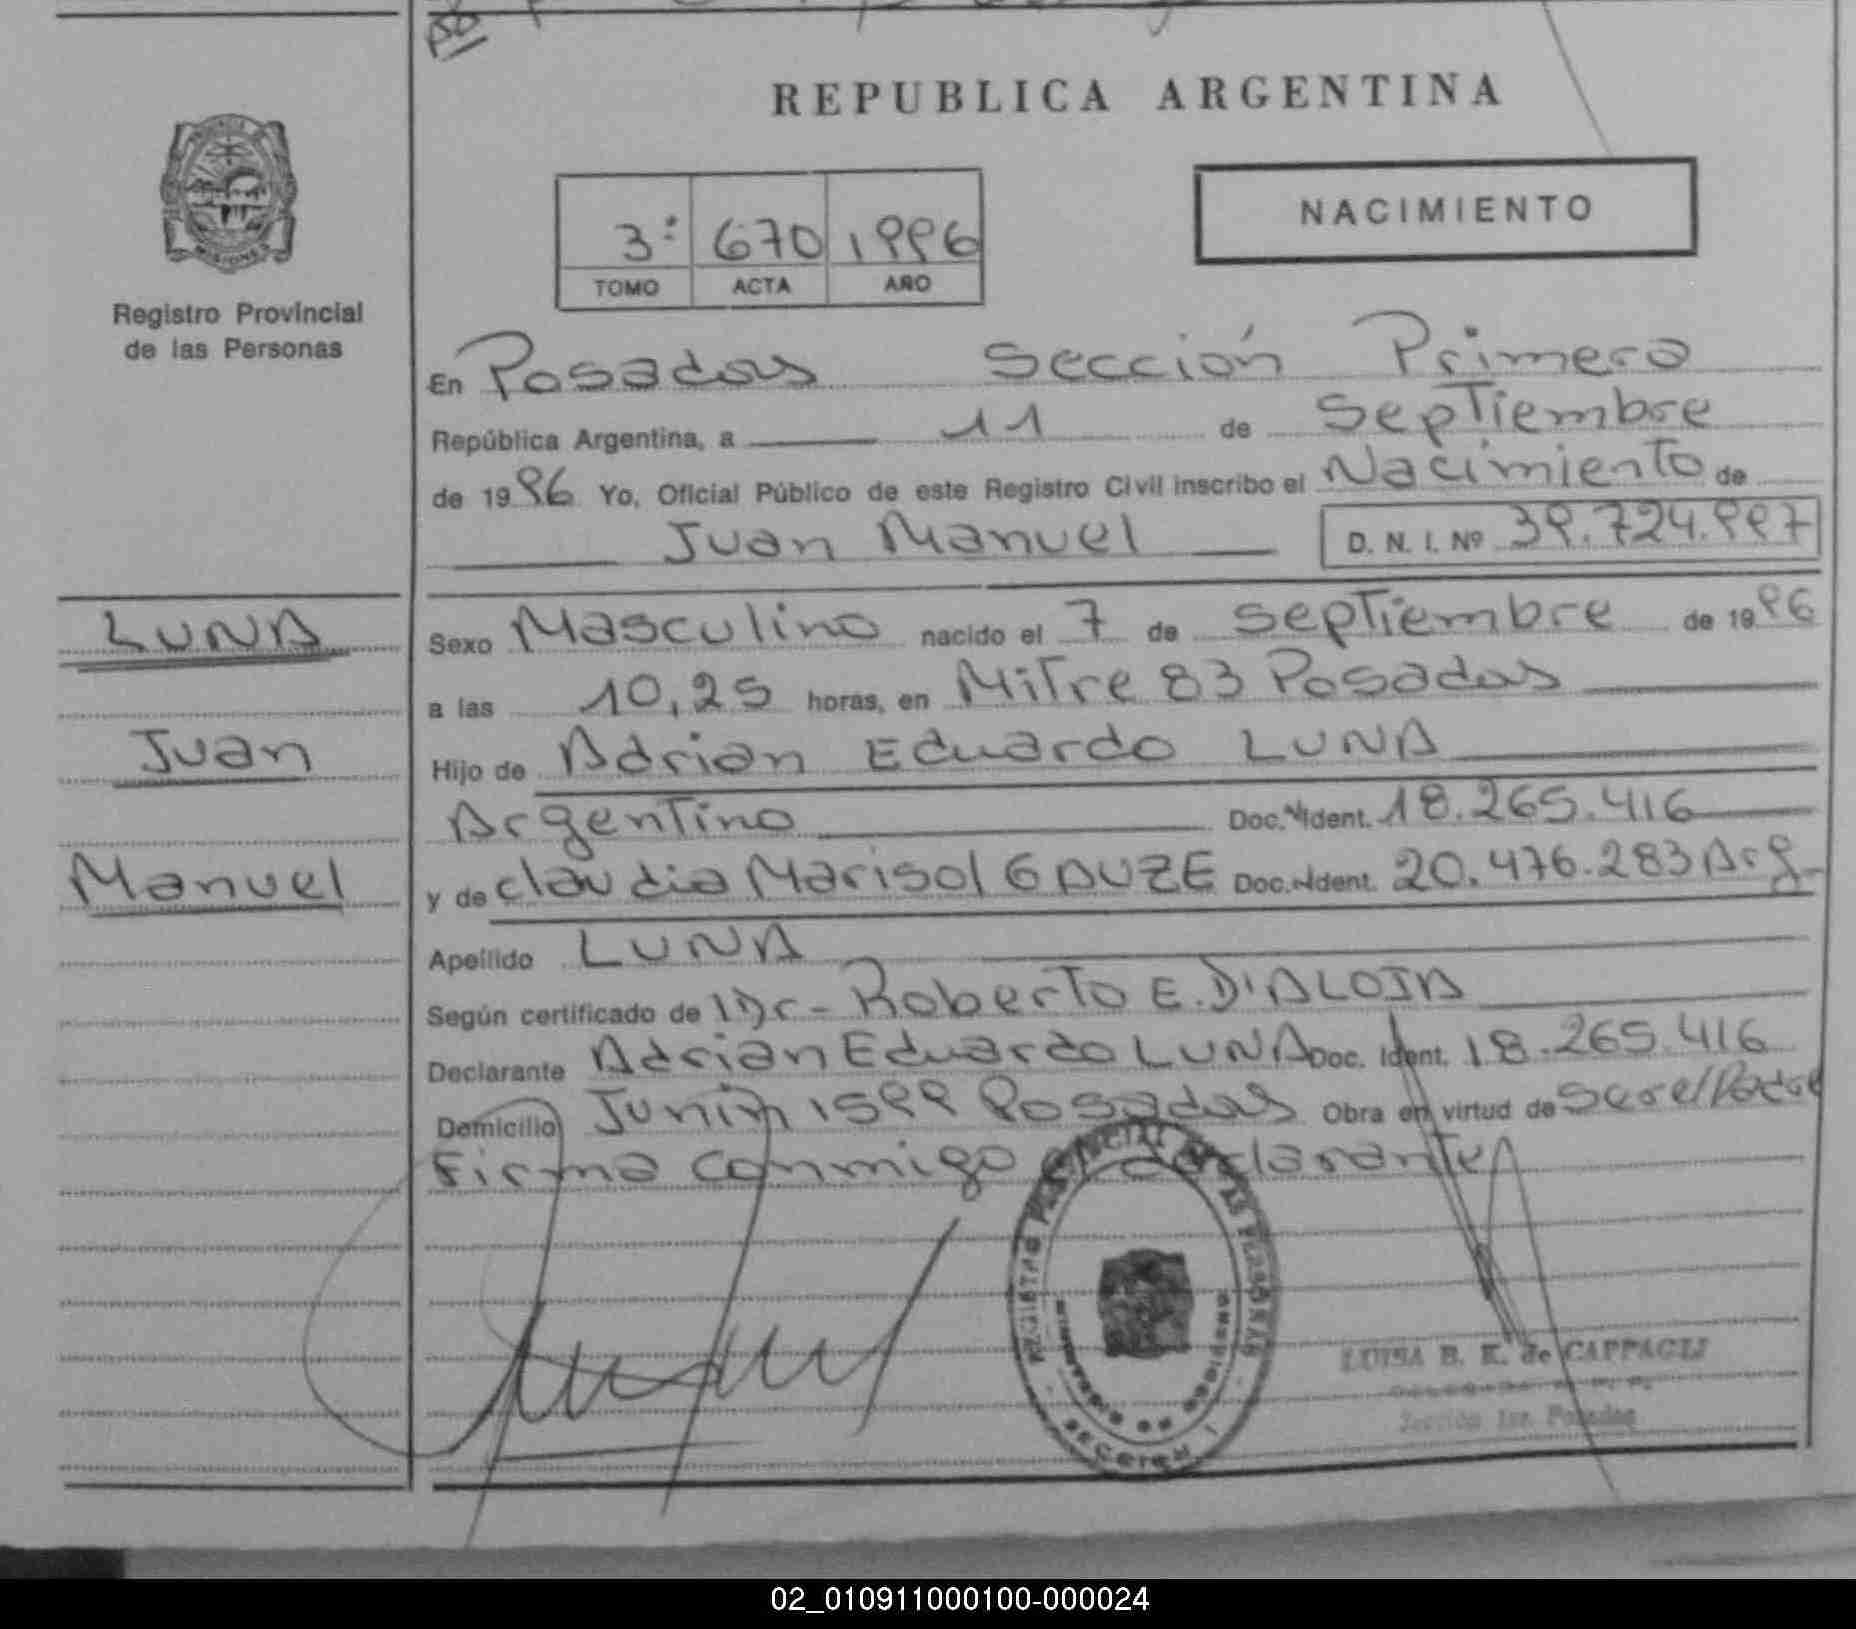 REPUBLICA ARGENTINA
NACIMIENTO
3ª 670 1996
TOMO ACTA AÑO
MISIONES
Registro Provincial
de las Personas
En Posadas Sección Primera
República Argentina, a 11 de Septiembre
de 1996 Yo, Oficial Público de este Registro Civil inscribo el Nacimiento de
Juan Manuel D. N. I. Nº 39.724.997
LUNA
Juan
Manuel
Sexo Masculino nacido el 7 de Septiembre de 1996
a las 10,25 horas, en Mitre 83 Posadas
Hijo de Adrian Eduardo LUNA
Argentino Doc. Ident. 18.265.416
y de Claudia Marisol GAUZE Doc. Ident. 20.476.283 Arg.
Apellido LUNA
Según certificado de Dr- Roberto E. D'ALOJA
Declarante Adrian Eduardo LUNA Doc. Ident. 18.265.416
Domicilio Junin 1599 Posadas Obra en virtud de
Firma conmigo declarante
LUISA B. K. de CAPPAGLI
Sección 1ra. Posadas
02_010911000100-000024